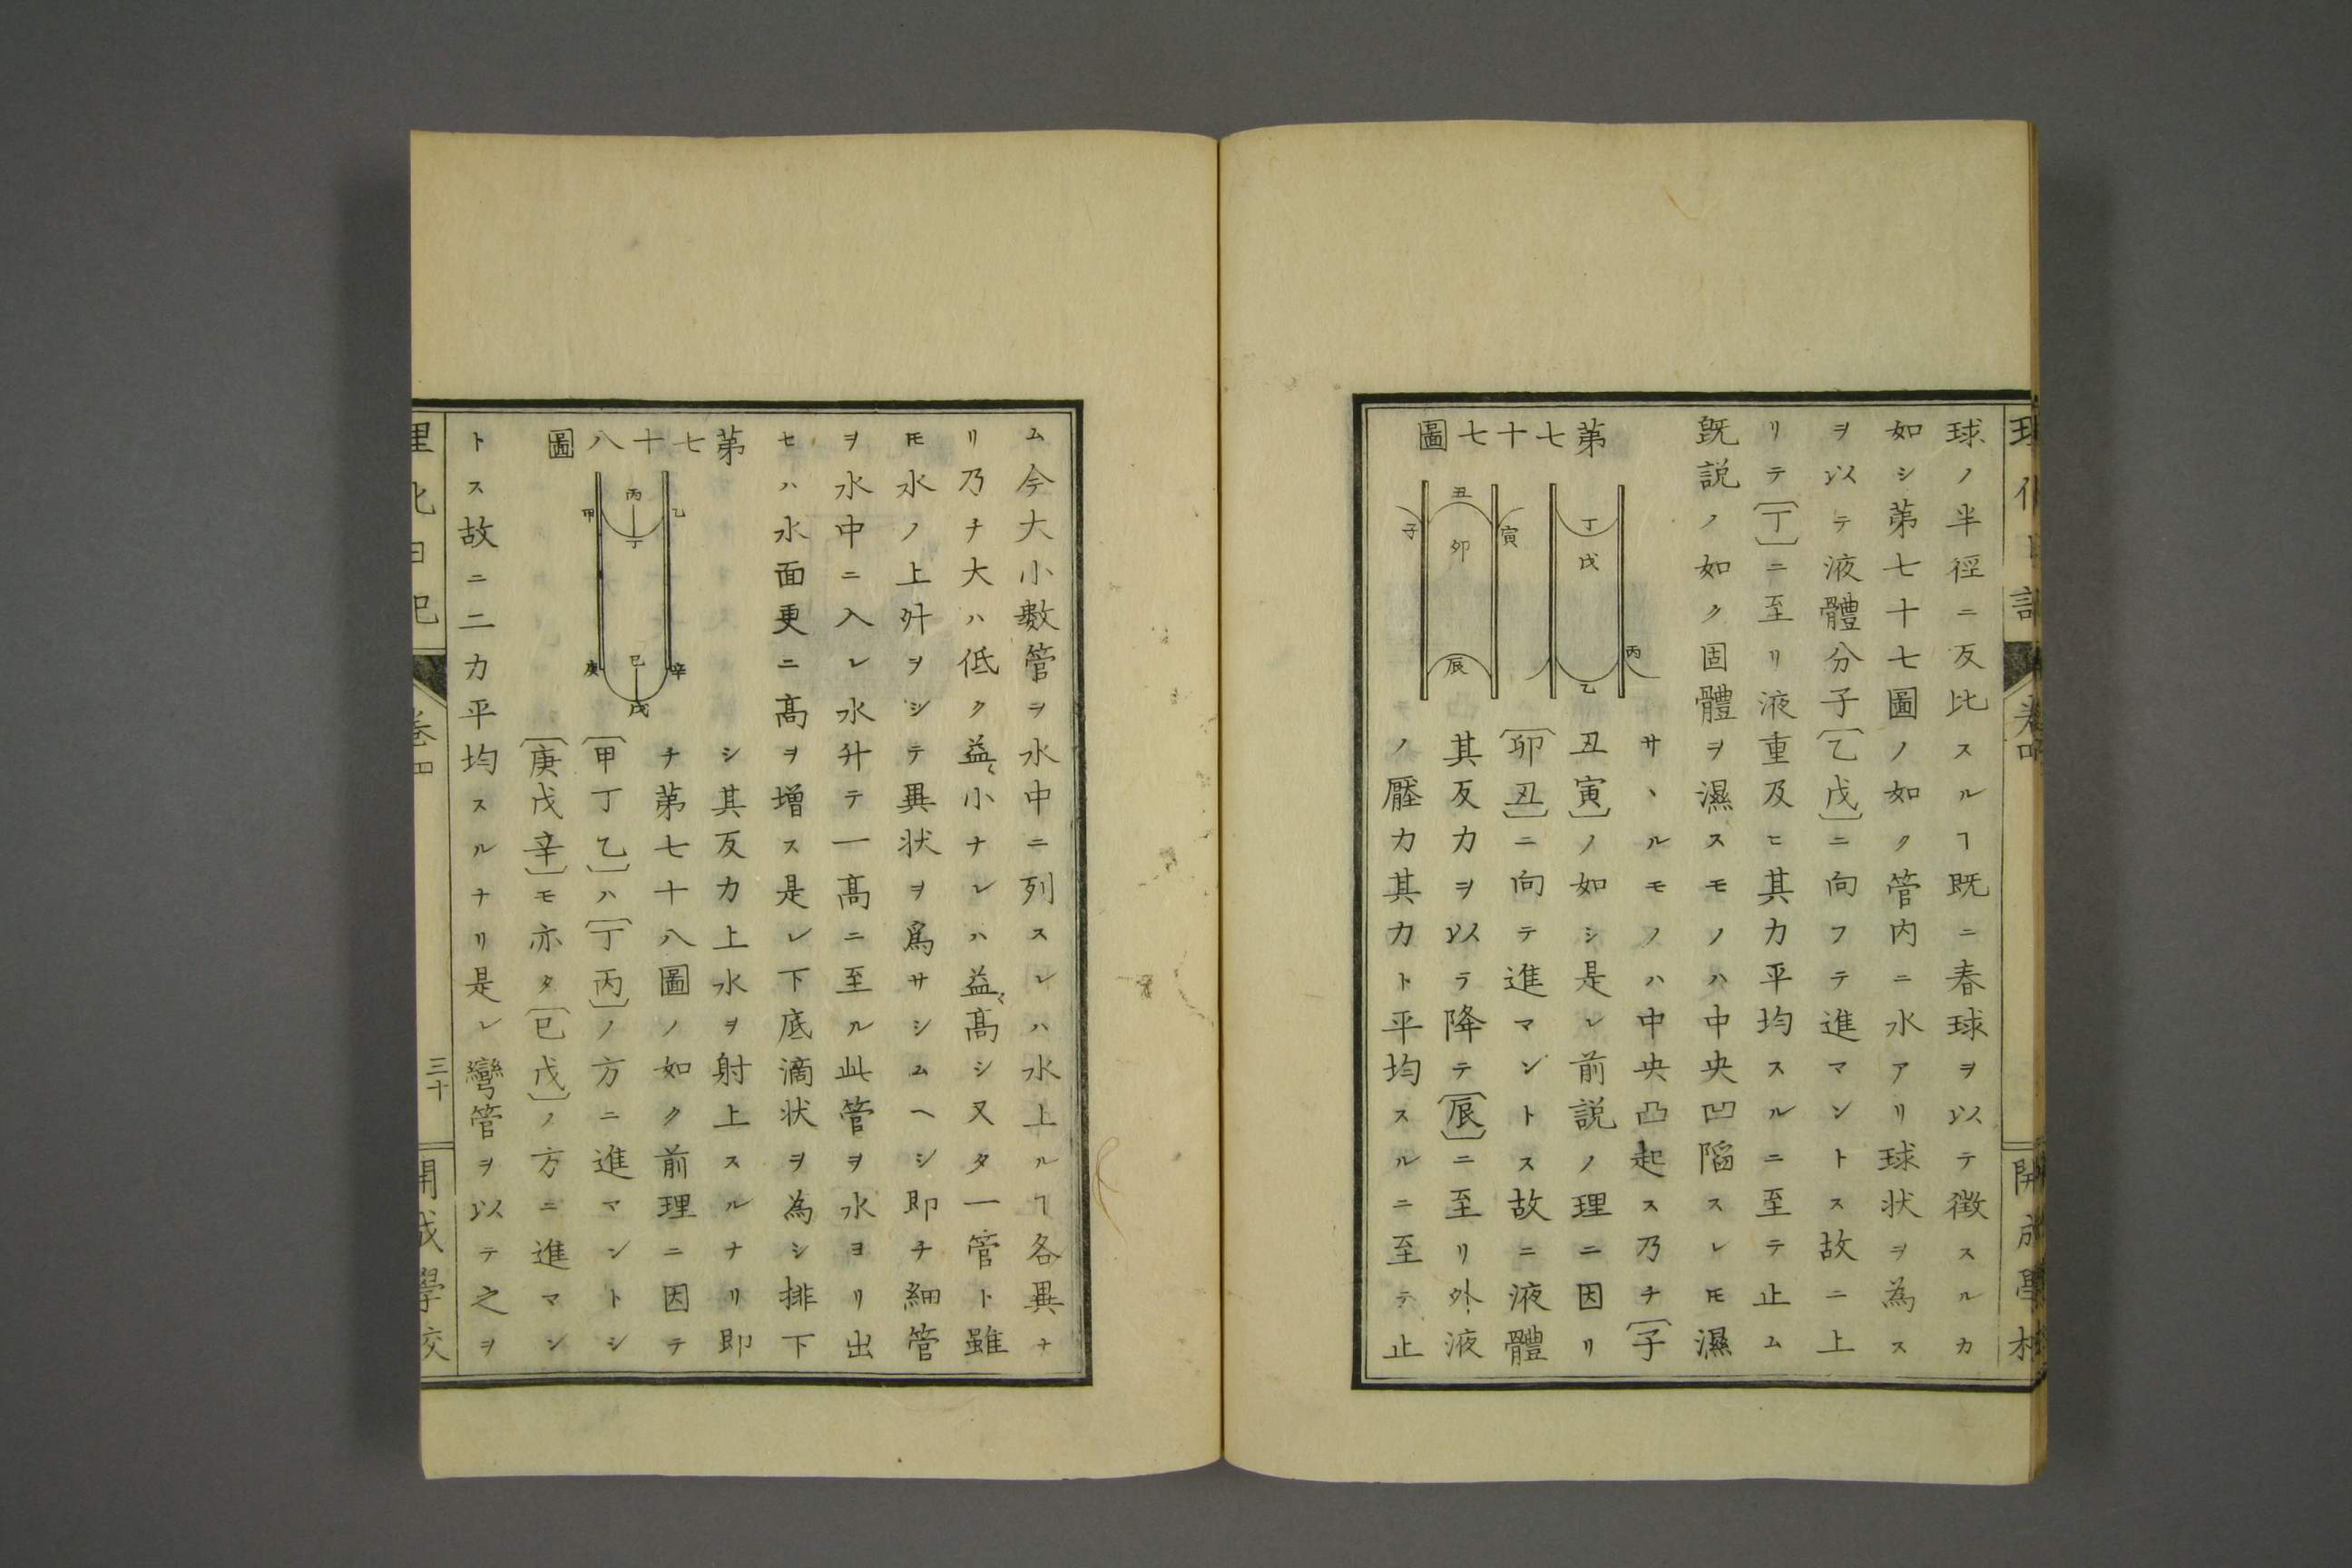 球ノ半徑ニ反比スルヿ既ニ春球ヲ以テ徴スルカ
如シ第七十七圖ノ如ク管内ニ水アリ球状ヲ為ス
ヲ以テ液體分子〔乙戊〕ニ向フテ進マントス故ニ上
リテ〔丁〕ニ至リ液重及ヒ其力平均スルニ至テ止ム
既説ノ如ク固體ヲ濕スモノハ中央凹陷スレ𪜈濕
サヽルモノハ中央凸起ス乃チ〔子
丑寅〕ノ如シ是レ前説ノ理ニ因リ
〔卯丑〕ニ向テ進マントス故ニ液體
其反力ヲ以ラ降テ〔辰〕ニ至リ外液
ノ壓力其力ト平均スルニ至テ止
第七十七圖
丑
子
卯
寅
辰
丁
戊
丙
乙
ム今大小數管ヲ水中ニ列スレハ水上ルヿ各異ナ
リ乃チ大ハ低ク益〻小ナレハ益〻高シ又タ一管ト雖
𪜈水ノ上升ヲシテ異状ヲ爲サシムヘシ即チ細管
ヲ水中ニ入レ水升テ一高ニ至ル此管ヲ水ヨリ出
セハ水面更ニ高ヲ増ス是レ下底滴状ヲ為シ排下
シ其反力上水ヲ射上スルナリ即
チ第七十八圖ノ如ク前理ニ因テ
〔甲丁乙〕ハ〔丁丙〕ノ方ニ進マントシ
〔庚戊辛〕モ亦タ〔已戊〕ノ方ニ進マン
トス故ニ二力平均スルナリ是レ彎管ヲ以テ之ヲ
第七十八圖
丙
甲
乙
丁
庚
已
辛
戊
理化日記
卷四
三十
開成學校